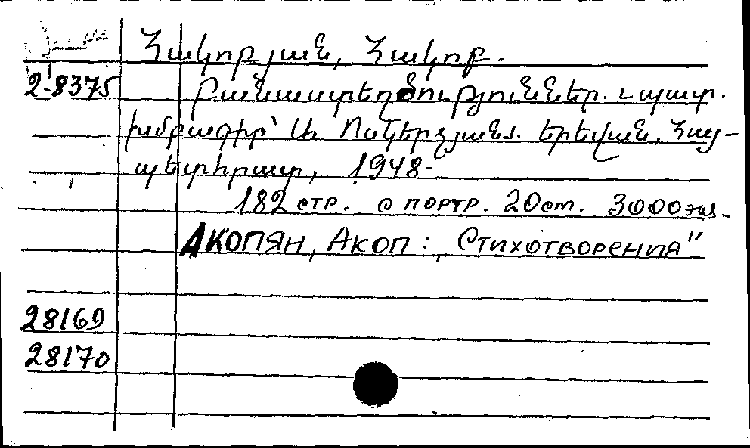 Հակոբյան, Հակոբ.
2-8375 Բանաստեղծություններ. Հ պատ.
խմբագիր՝ Ա. Ոսկերչյան. Երեվան, Հայ-
պետհրատ, 1948-
182 стр. с портр. 20 см. 3000 экз.
АКОПЯН, АКОП: „Стихотворения"
28169
28170